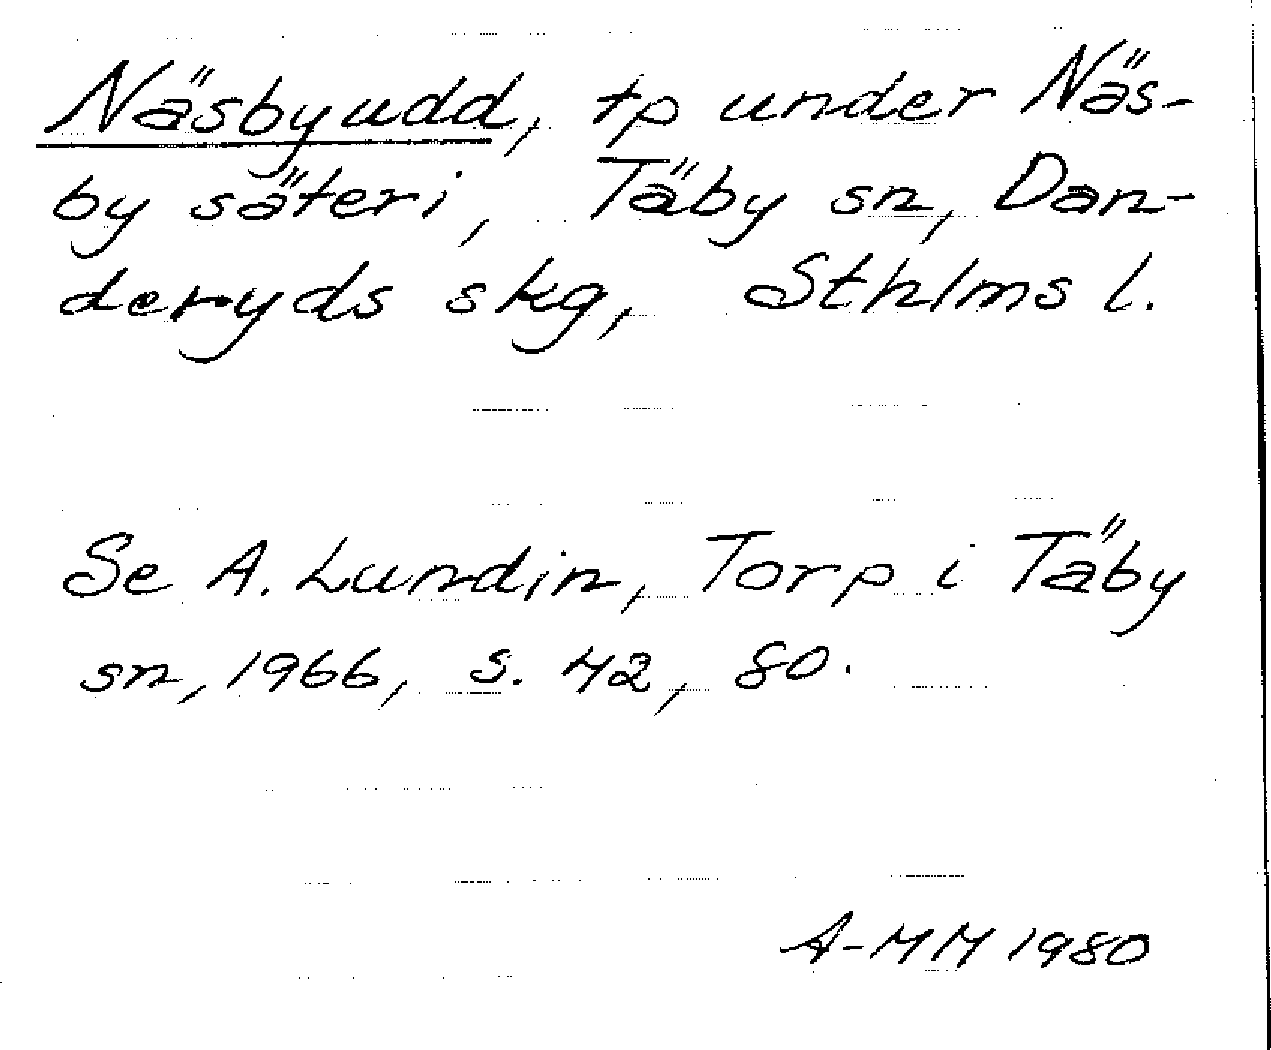 Näsbyudd, tp under Näs-
by säteri, Täby sn, Dan-
deryds skg, Sthlms l.
Se A. Lundin, Torp i Täby
sn, 1966, s. 42, 80.
A-MM 1980